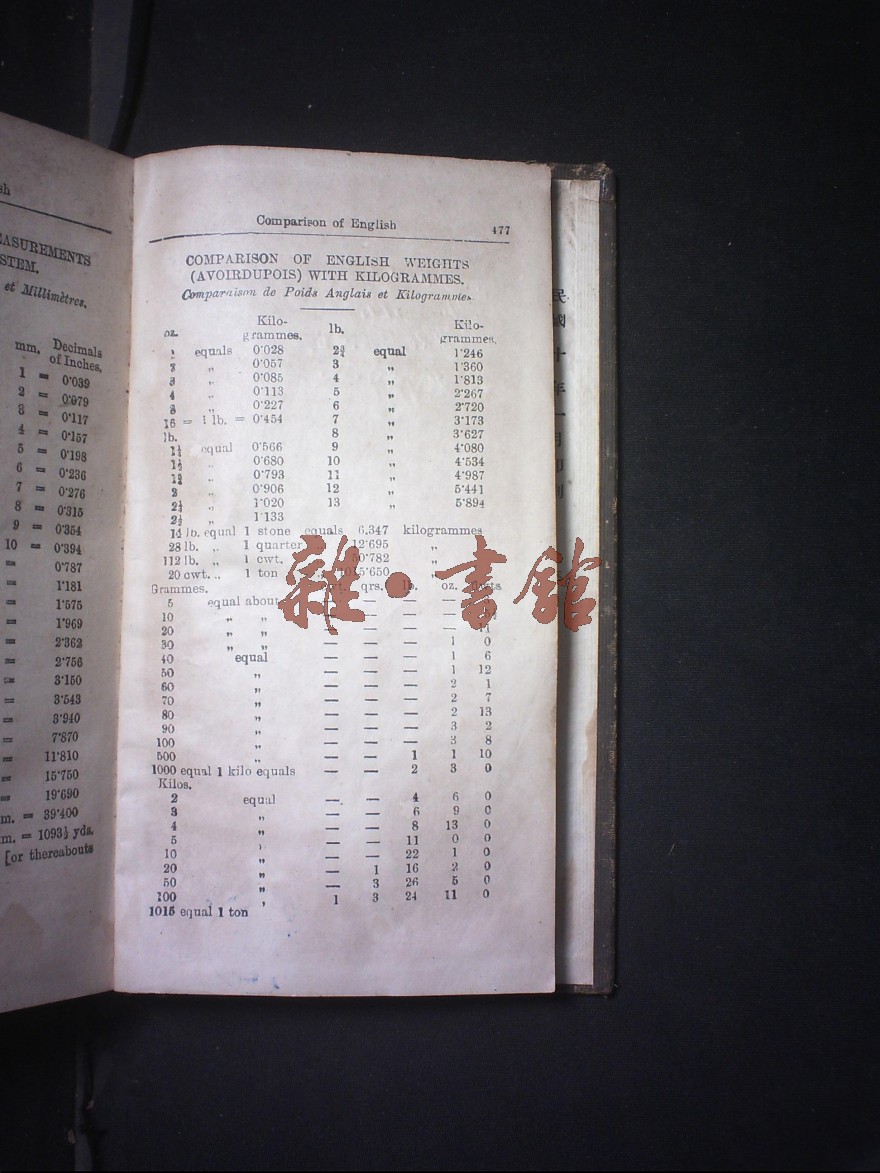 sh
MEASUREMENTS
STEM.
et Millimètres.
mm. Decimals
of Inches.
1 = 0·039
2 = 0·079
3 = 0·117
4 = 0·157
5 = 0·198
6 = 0·236
7 = 0·276
8 = 0·315
9 = 0·354
10 = 0·394
= 0·787
= 1·181
= 1·575
= 1·969
= 2·362
= 2·756
= 3·150
= 3·543
= 3·940
= 7·870
= 11·810
= 15·750
= 19·690
m. = 39·400
m. = 1093⅓ yds.
[or thereabouts
Comparison of English 477
COMPARISON OF ENGLISH WEIGHTS
(AVOIRDUPOIS) WITH KILOGRAMMES.
Comparaison de Poids Anglais et Kilogrammes.
Kilo- Kilo-
oz. grammes. lb. grammes.
1 equals 0·028 2¾ equal 1·246
2 „ 0·057 3 „ 1·360
3 „ 0·085 4 „ 1·813
4 „ 0·113 5 „ 2·267
8 „ 0·227 6 „ 2·720
16 = 1 lb. = 0·454 7 „ 3·173
lb. 8 „ 3·627
1¼ equal 0·566 9 „ 4·080
1½ „ 0·680 10 „ 4·534
1¾ „ 0·793 11 „ 4·987
2 „ 0·906 12 „ 5·441
2¼ „ 1·020 13 „ 5·894
2½ „ 1·133
14 lb. equal 1 stone equals 6.347 kilogrammes
28 lb. „ 1 quarter 12·695 „
112 lb. „ 1 cwt. 50·782 „
20 cwt. „ 1 ton 1015·650 „
Grammes. qrs. lb. oz.
5 equal about — — —
10 „ „ — — — —
20 „ „ — — — —
30 „ „ — — — 1 0
40 equal — — — 1 6
50 „ — — — 1 12
60 „ — — — 2 1
70 „ — — — 2 7
80 „ — — — 2 13
90 „ — — — 3 2
100 „ — — — 3 8
500 „ — — 1 1 10
1000 equal 1 kilo equals — — 2 3 0
Kilos.
2 equal — — 4 6 0
3 „ — — 6 9 0
4 „ — — 8 13 0
5 „ — — 11 0 0
10 „ — — 22 1 0
20 „ — 1 16 2 0
50 „ — 3 26 5 0
100 „ 1 3 24 11 0
1015 equal 1 ton
雜·書館